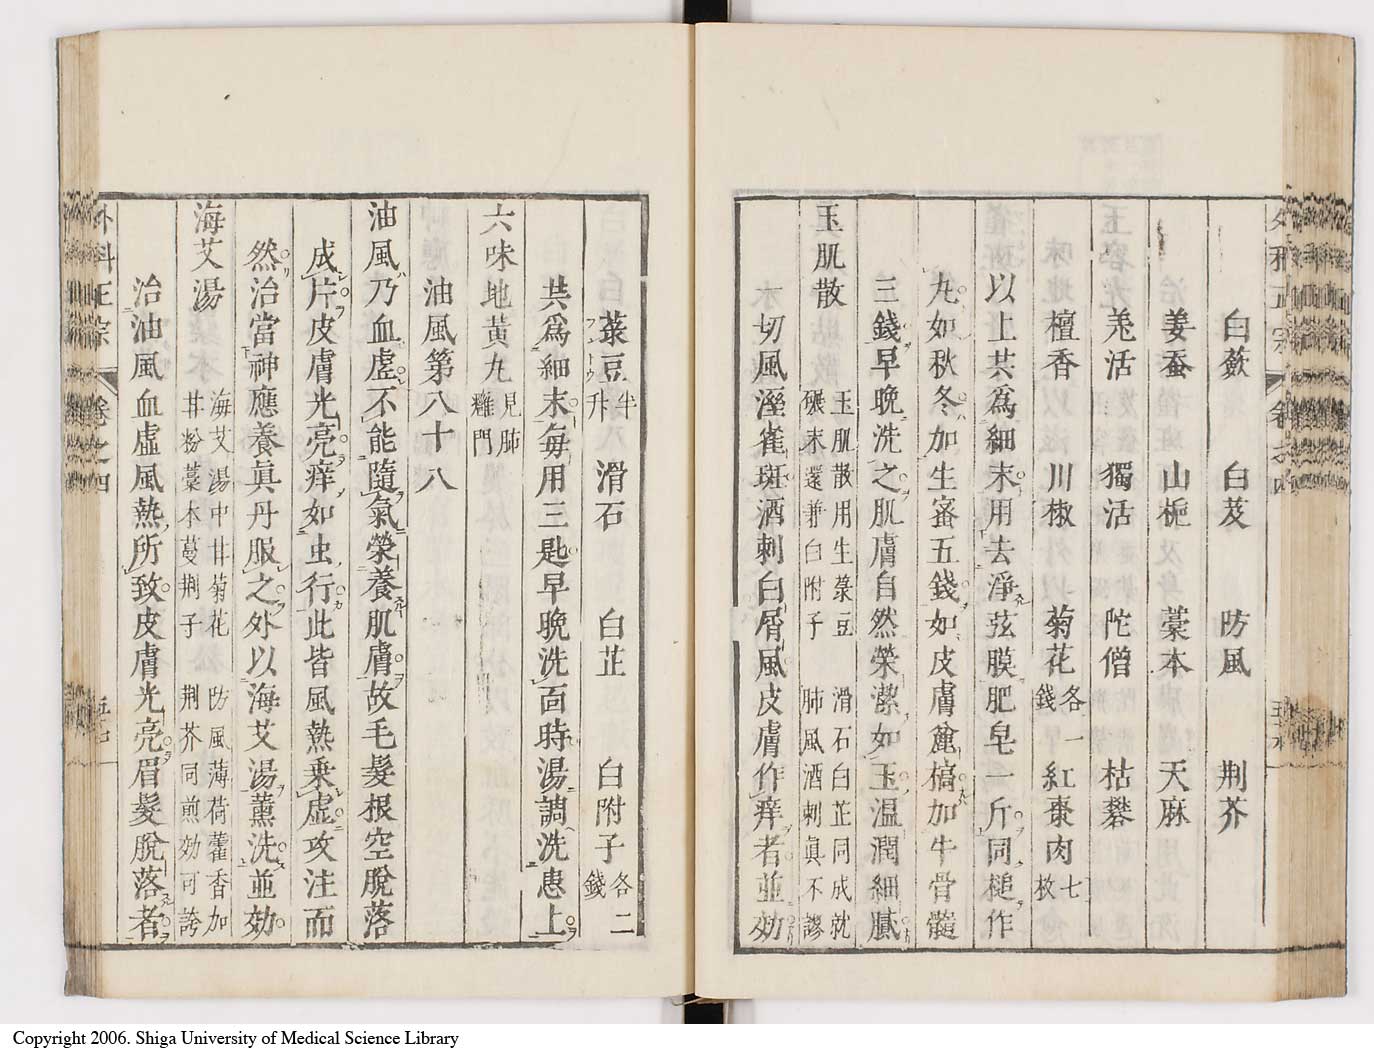 白蘞 白芨 防風 荆芥
姜蚕 山梔 藁本 天麻
羗活 獨活 陀僧 枯礬
檀香 川椒 菊花各一錢 紅棗肉七枚
以上共爲細末用去淨弦膜肥皂一斤同槌作
丸如秋冬加生蜜五錢如皮膚麄槁加牛骨髓
三錢早晚洗之肌膚自然榮潔如玉温潤細膩
玉肌散 玉肌散用生菉豆 滑石白芷同成就
碾末還兼白附子 肺風酒刺眞不謬
一切風溼雀斑酒刺白屑風皮膚作痒者並効
菉豆半升 滑石 白芷 白附子各二錢
フントウ
共爲細末每用三匙早晚洗面時湯調洗患上
六味地黄丸見肺癰門
油風第八十八
油風乃血虗不能隨氣榮養肌膚故毛髮根空脫落
成片皮膚光亮痒如虫行此皆風熱乗虗攻注而
然治當神應養眞丹服之外以海艾湯薰洗並効
海艾湯 海艾湯中甘菊花 防風薄荷藿香加
甘粉藁本蔓荆子 荆芥同煎効可誇
治油風血虛風熱所致皮膚光亮眉髮脫落者
外科正宗 卷之四
Copyright 2006. Shiga University of Medical Science Library